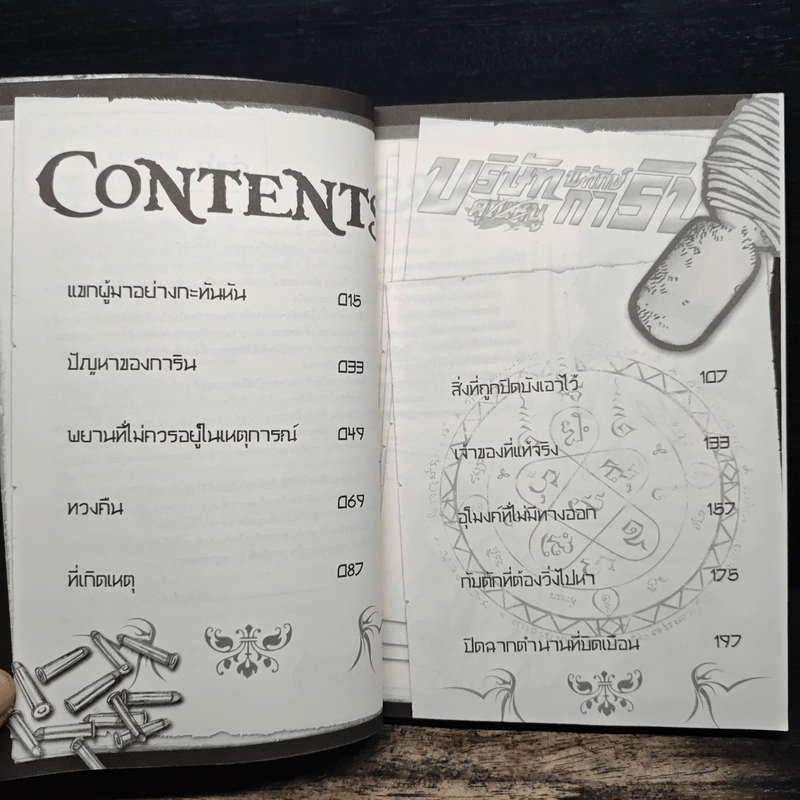 CONTENTS
แขกผู้มาอย่างกะทันหัน 015
ปัญหาของการิน 033
พยานที่ไม่ควรอยู่ในเหตุการณ์ 049
ทวงคืน 069
ที่เกิดเหตุ 087
บริษัท
พิทักษ์
การิน
สิ่งที่ถูกปิดบังเอาไว้ 107
เจ้าของที่แท้จริง 133
อุโมงค์ที่ไม่มีทางออก 157
กับดักที่ต้องวิ่งไปหา 175
ปิดฉากตำนานที่บิดเบือน 197